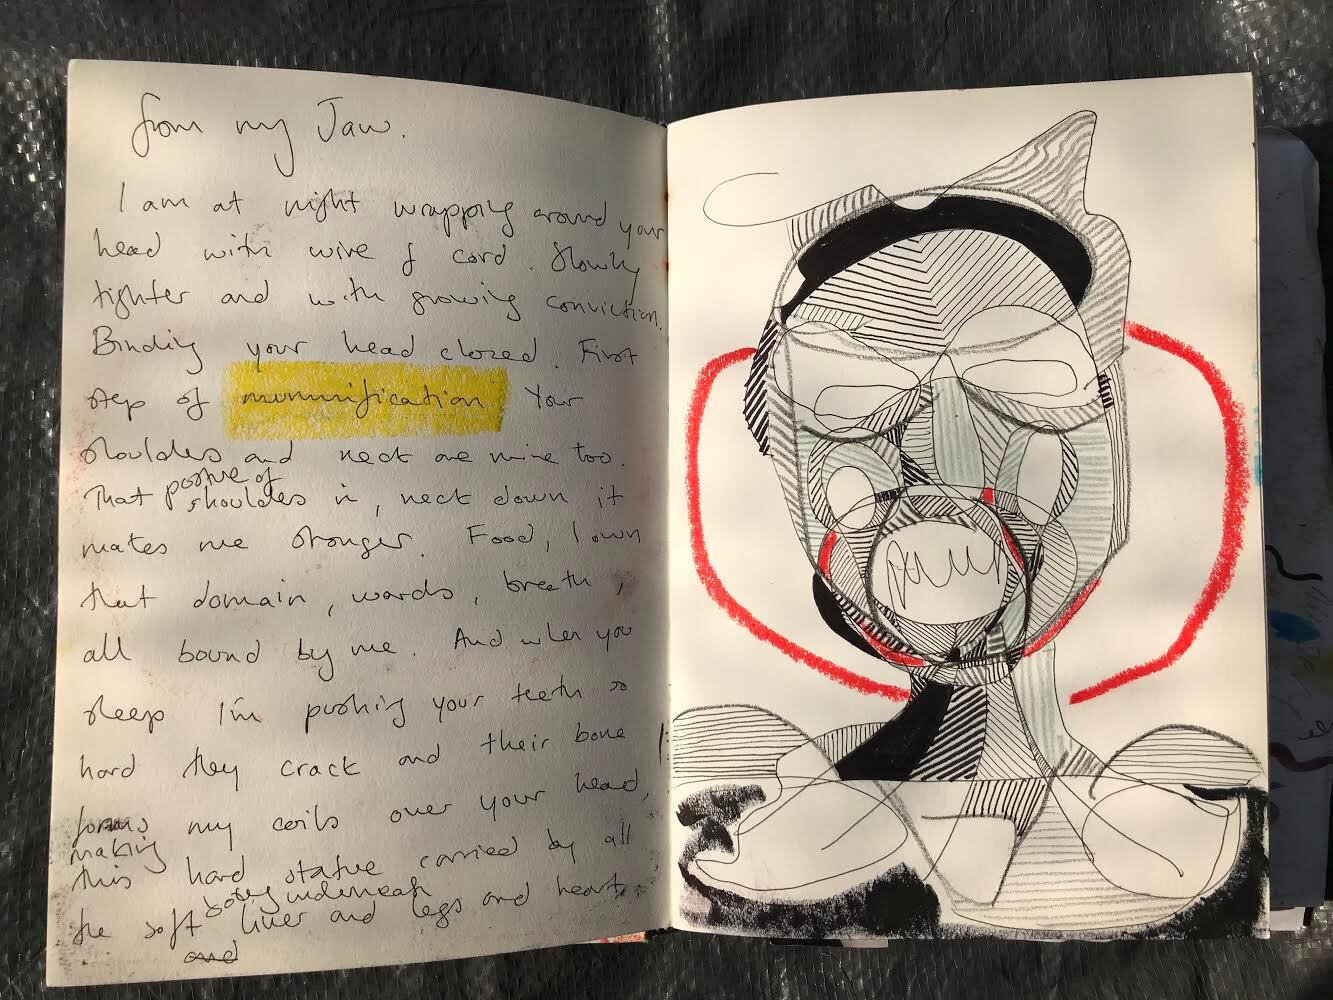 from my Jaw.
I am at night wrapping around your
head with wire & cord. Slowly
tighter and with growing conviction.
Binding your head closed. First
step of mummification Your
shoulders and neck are mine too.
That posture of shoulders in, neck down it
makes me stronger. Food, I own
that domain, words, breath,
all bound by me. And when you
sleep I'm pushing your teeth so
hard they crack and their bone
forms my coils over your head,
making
this hard statue carried by all
the soft underneath liver and legs and heart
and